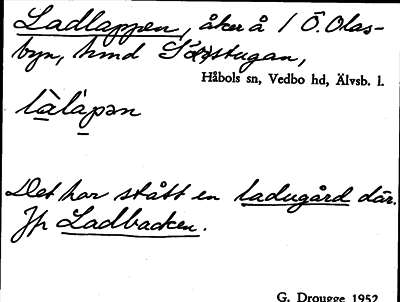 Ladlappen, åker å 1 Ö. Olas-
byn, hmd Sörstugan,
Håbols sn, Vedbo hd, Älvsb. l.
Det har stått en ladugård där.
Jfr Ladbacken.
G. Drougge 1952